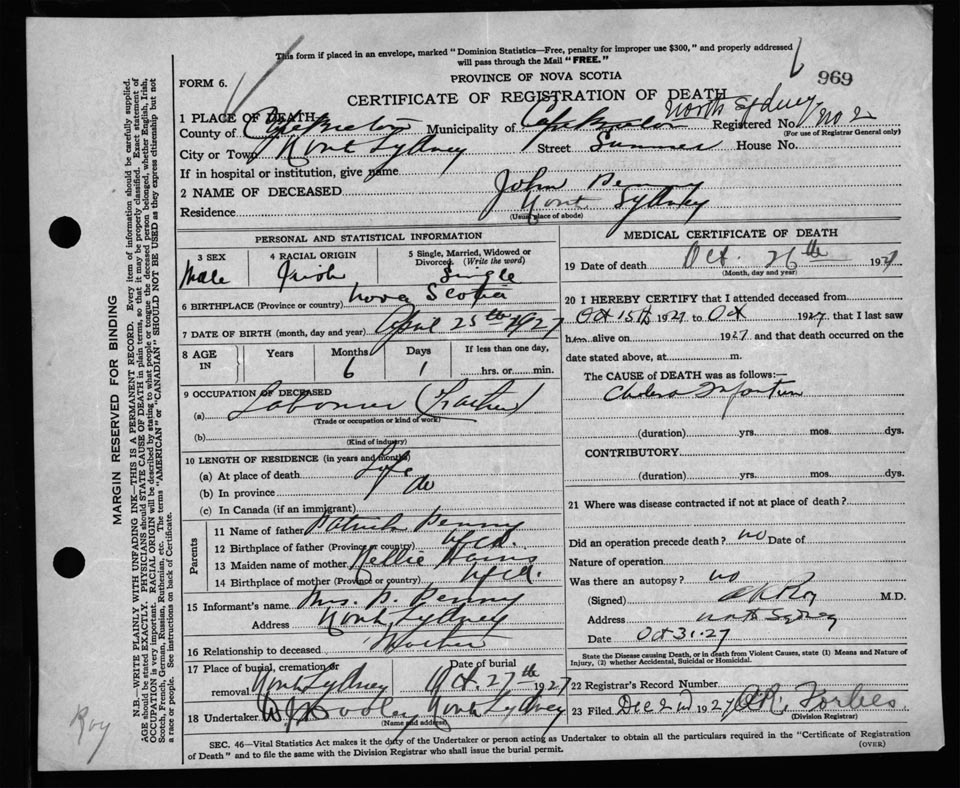 This form if placed in an envelope, marked "Dominion Statistics—Free, penalty for improper use $300," and properly addressed
will pass through the Mail "FREE."
969
PROVINCE OF NOVA SCOTIA
FORM 6.
CERTIFICATE OF REGISTRATION OF DEATH
1 PLACE OF DEATH
North Sydney
County of Cape Breton Municipality of Cape Breton Registered No. No 2
(For use of Registrar General only)
City or Town North Sydney Street Summer House No.
If in hospital or institution, give name
2 NAME OF DECEASED John Penny
Residence North Sydney
(Usual place of abode)
PERSONAL AND STATISTICAL INFORMATION
3 SEX 4 RACIAL ORIGIN 5 Single, Married, Widowed or Divorced (Write the word)
Male Irish Single
6 BIRTHPLACE (Province or country) Nova Scotia
7 DATE OF BIRTH (month, day and year) April 25th 1927
8 AGE IN Years Months Days If less than one day,
6 1 hrs. or min.
9 OCCUPATION OF DECEASED
(a) Labourer (Father)
(Trade or occupation or kind of work)
(b)
(Kind of industry)
10 LENGTH OF RESIDENCE (in years and months)
(a) At place of death Life
(b) In province do
(c) In Canada (if an immigrant)
Parents
11 Name of father Patrick Penny
12 Birthplace of father (Province or country) Nfld.
13 Maiden name of mother Nellie
14 Birthplace of mother (Province or country) Nfld.
15 Informant's name Mrs. P. Penny
Address North Sydney
16 Relationship to deceased Mother
17 Place of burial, cremation or removal Date of burial
North Sydney Oct. 27th 1927
18 Undertaker W. J. Dooley North Sydney
(Name and address)
MEDICAL CERTIFICATE OF DEATH
19 Date of death Oct. 26th 1927
(Month, day and year)
20 I HEREBY CERTIFY that I attended deceased from
Oct 15th 1927 to Oct 1927, that I last saw
him alive on 1927 and that death occurred on the
date stated above, at m.
The CAUSE OF DEATH was as follows:—
Cholera Infantum
(duration) yrs. mos. dys.
CONTRIBUTORY
(duration) yrs. mos. dys.
21 Where was disease contracted if not at place of death?
Did an operation precede death? no Date of
Nature of operation
Was there an autopsy? no
(Signed) Roy M.D.
Address North Sydney
Date Oct 31-27
State the Disease causing Death, or in death from Violent Causes, state (1) Means and Nature of
Injury, (2) whether Accidental, Suicidal or Homicidal.
22 Registrar's Record Number
23 Filed Dec 2nd 1927 Forbes
(Division Registrar)
SEC. 46—Vital Statistics Act makes it the duty of the Undertaker or person acting as Undertaker to obtain all the particulars required in the "Certificate of Registration
of Death" and to file the same with the Division Registrar who shall issue the burial permit.
(OVER)
MARGIN RESERVED FOR BINDING
N.B.—WRITE PLAINLY WITH UNFADING INK—THIS IS A PERMANENT RECORD. Every item of information should be carefully supplied.
AGE should be stated EXACTLY. PHYSICIANS should STATE CAUSE OF DEATH in plain terms, so that it may be properly classified. Exact statement of
OCCUPATION is very important. RACIAL ORIGIN will be described by stating to what people or tongue the deceased person belonged, whether English, Irish,
Scotch, French, German, Russian, Ruthenian, etc. The terms "AMERICAN" or "CANADIAN" SHOULD NOT BE USED as they express citizenship but not
a race or people. See instructions on back of Certificate.
Roy